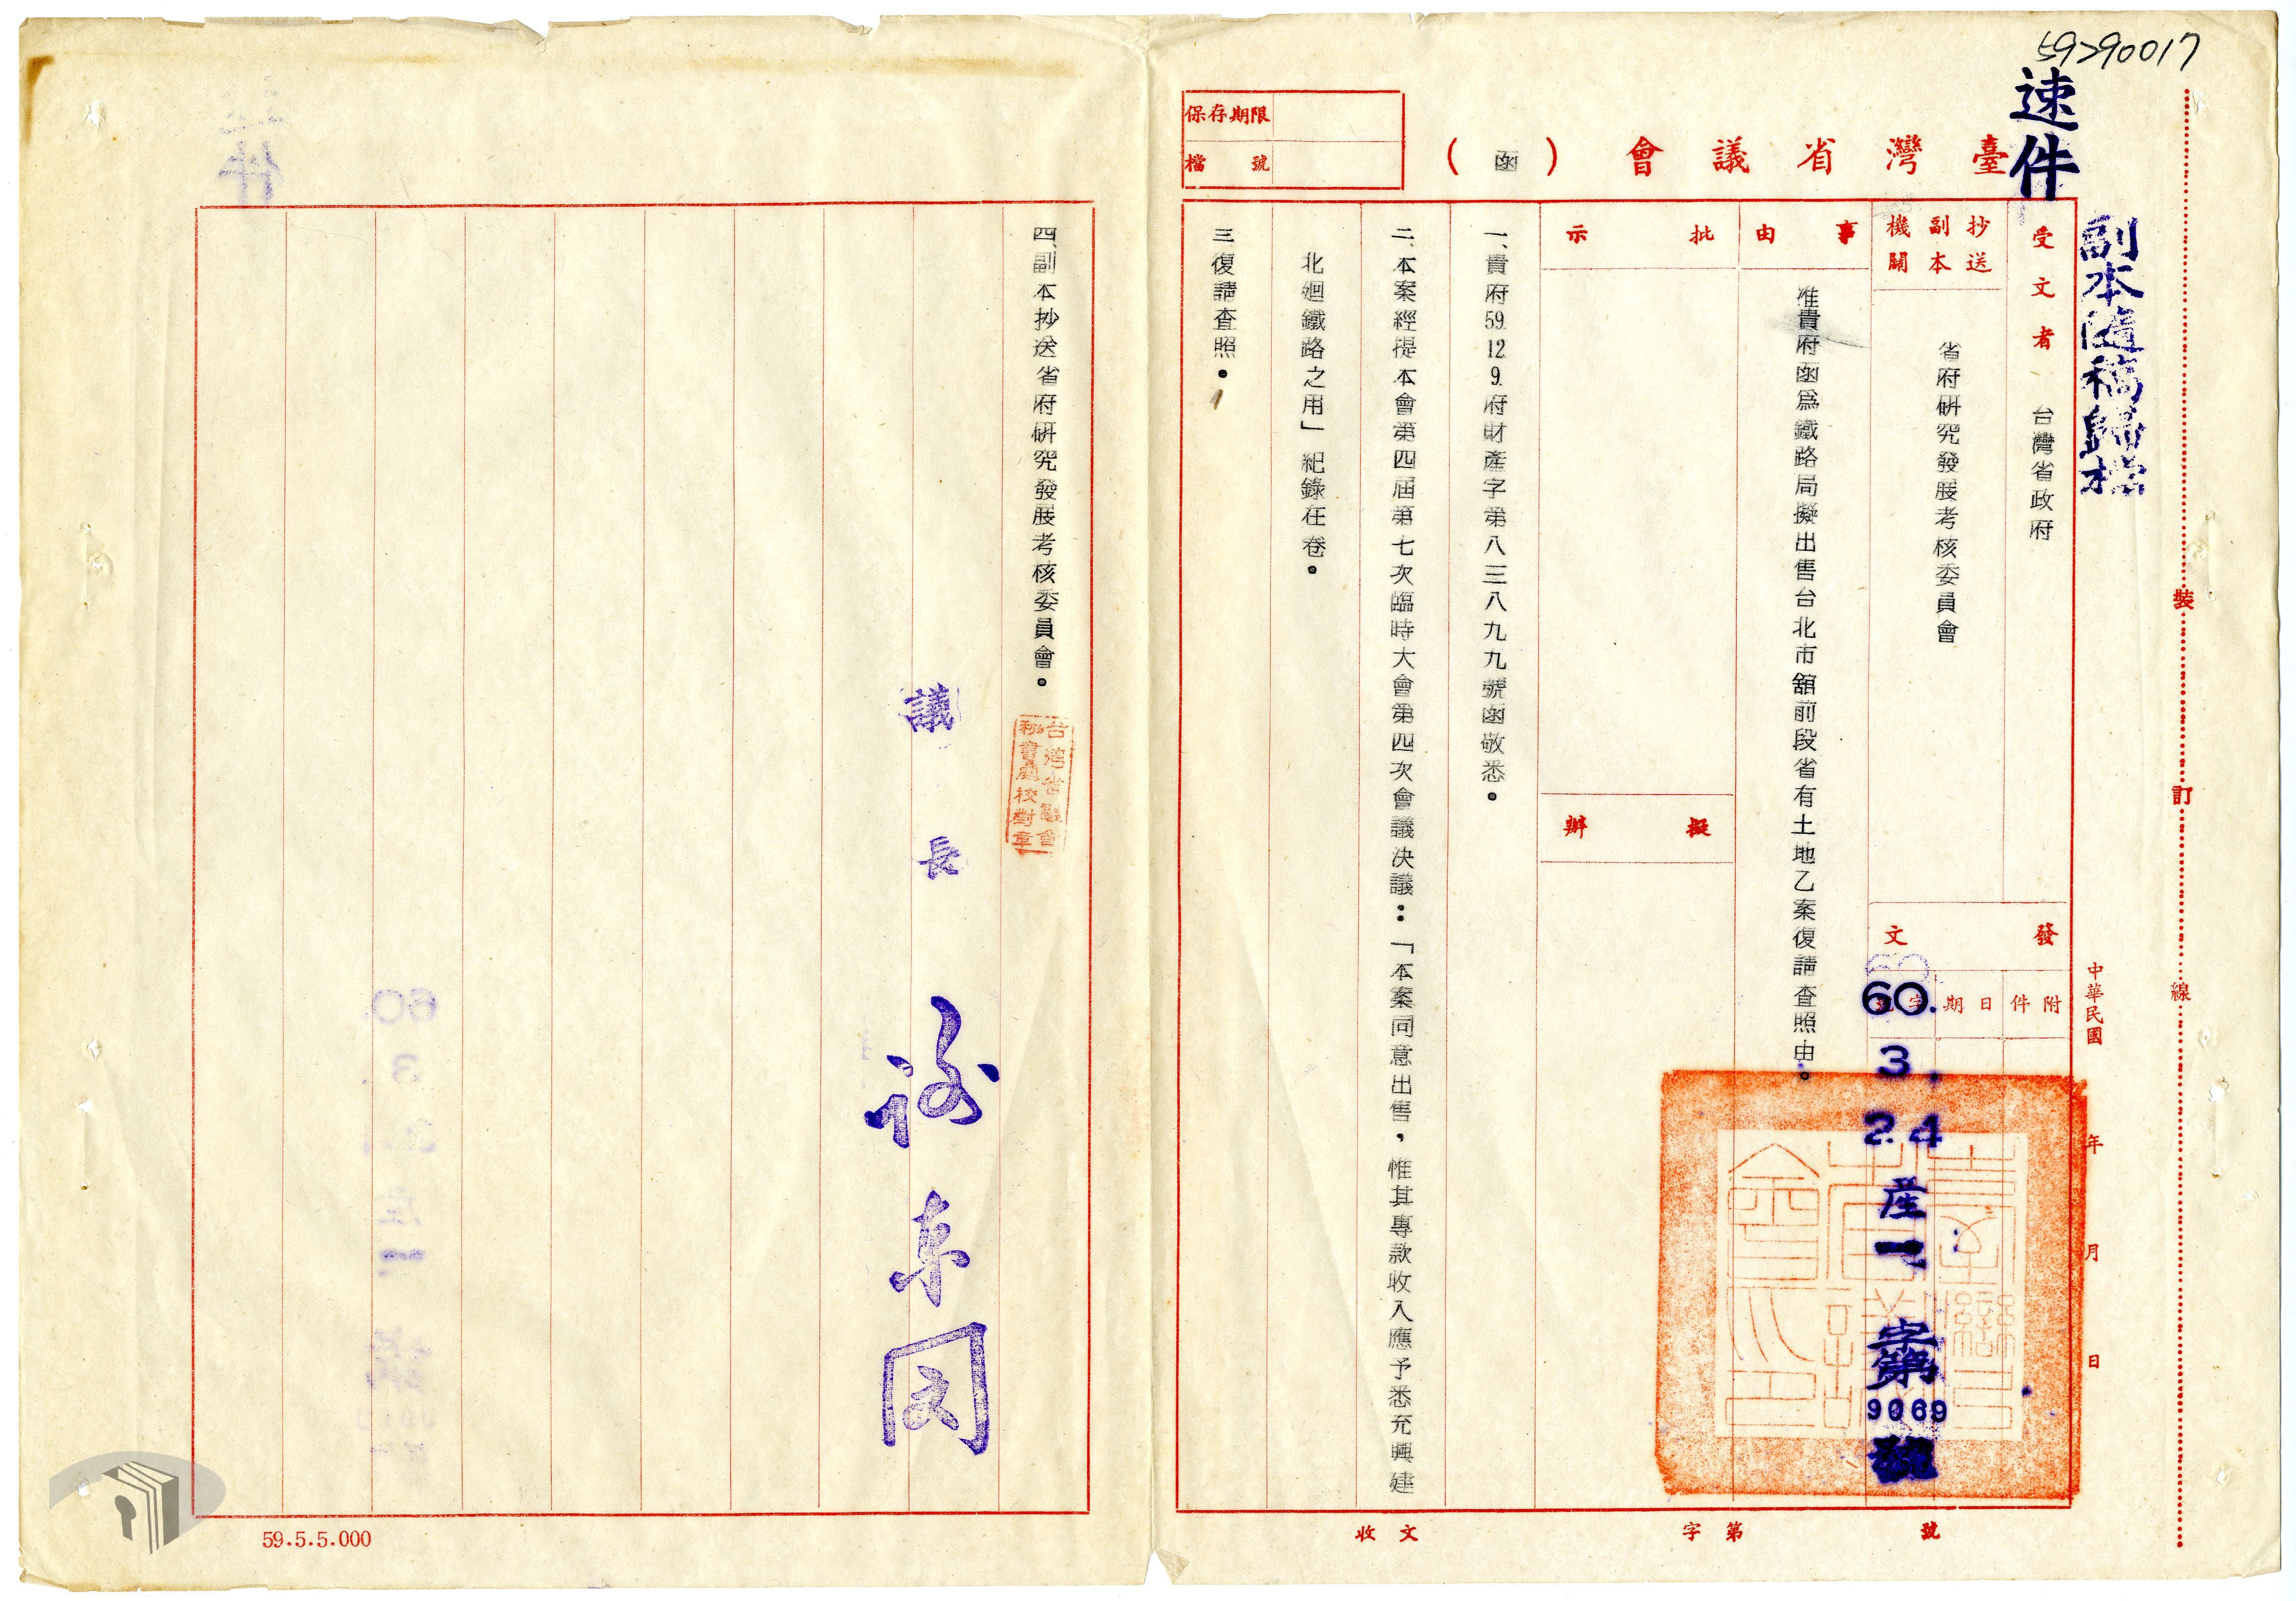 59290017
速件
副本隨稿歸檔
臺灣省議會（函）
保存期限
檔號
受文者 台灣省政府
抄送副本機關 省府研究發展考核委員會
事由 准貴府函為鐵路局擬出售台北市舘前段省有土地乙案復請查照由。
批示
擬辦
發文
附件
日期
字號
中華民國 年 月 日
60.3.24 產一字第9069號
一、貴府59.12.9.府財產字第八三八九九號函敬悉。
二、本案經提本會第四屆第七次臨時大會第四次會議決議：「本案同意出售，惟其專款收入應予悉充興建
北廻鐵路之用」紀錄在卷。
三復請查照。
四、副本抄送省府研究發展考核委員會。
台灣省議會
秘書處校對章
議長
裝 訂 線
收文 字第 號
59.5.5.000